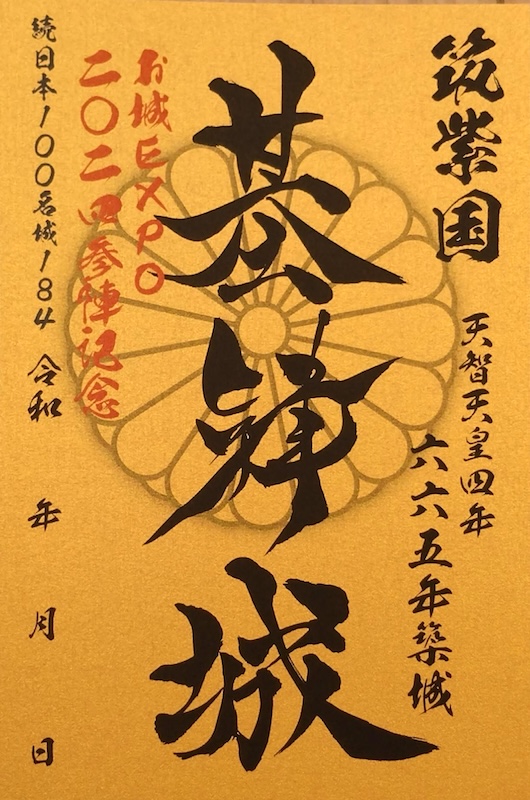 筑紫国
天智天皇四年
六六五年築城
基肄城
お城EXPO
二〇二四参陣記念
続日本100名城184 令和 年 月 日